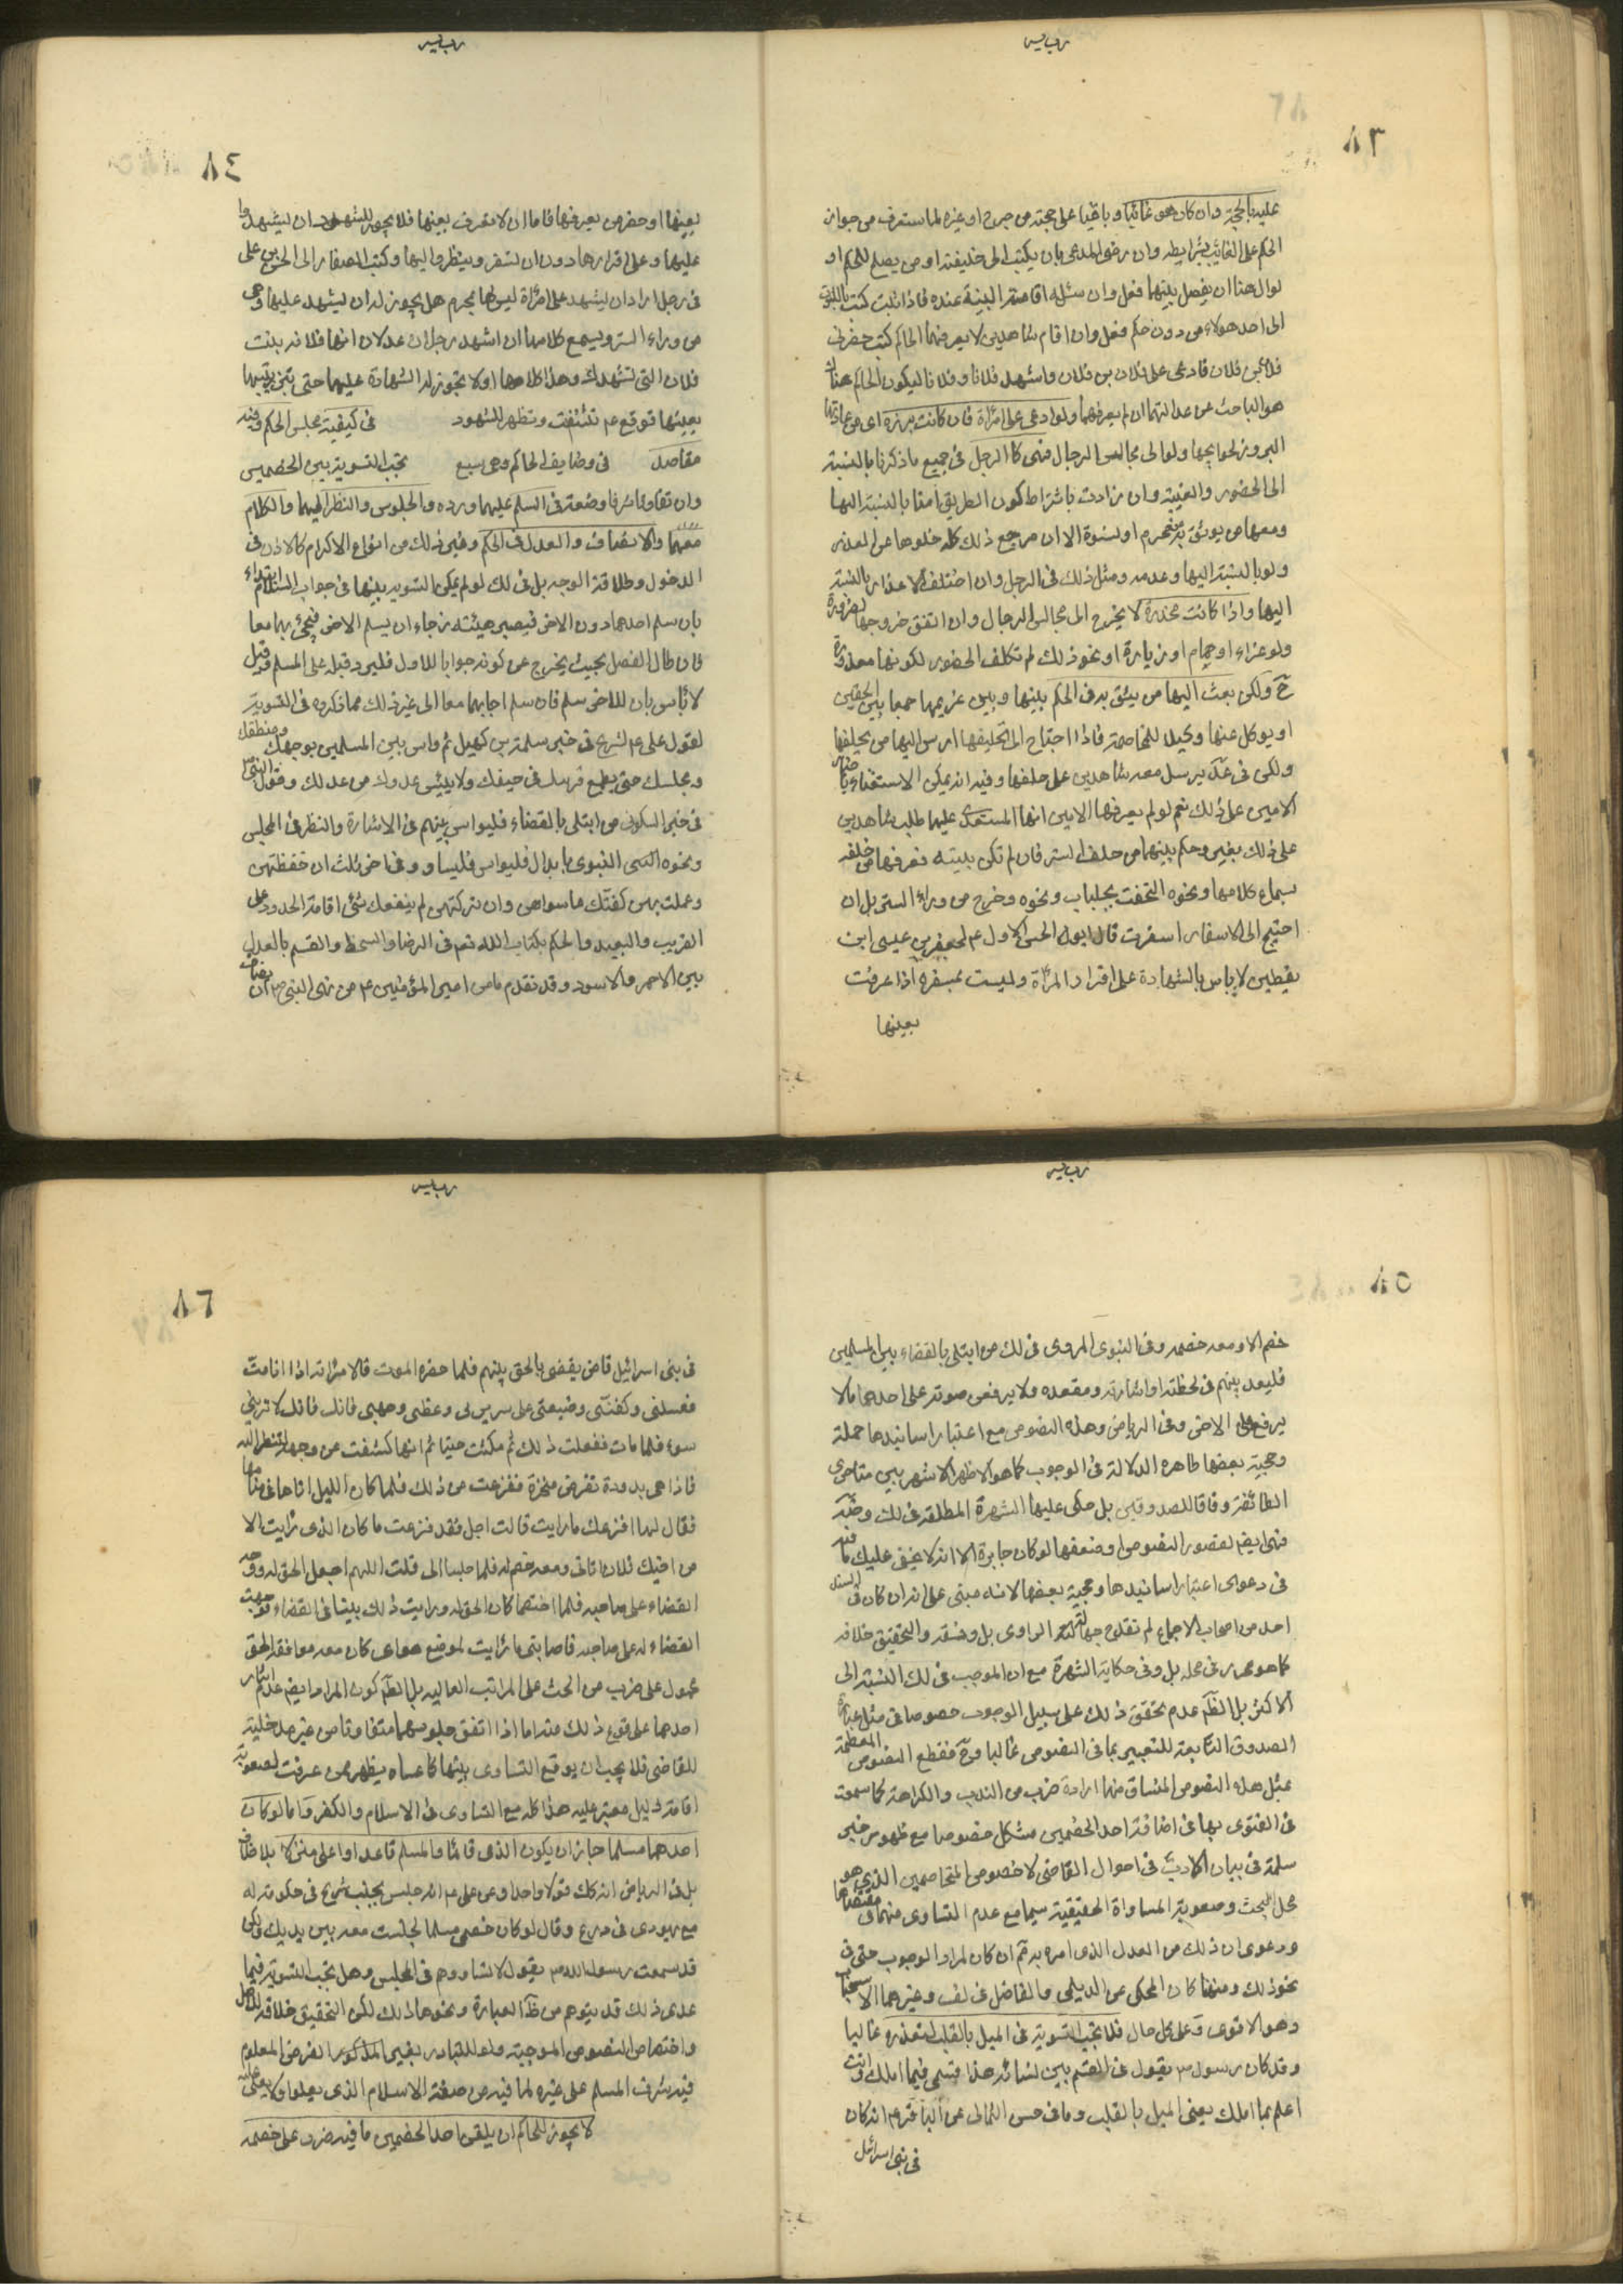 ٨٣
عليه بالحجة وان كان هو غائبا و باقيا على حجته من جرح او غيره لما ستعرف من جواز
الحكم على الغائب بشرايطه وان رضى المدعى بان يكتب الى خليفته او من يصلح للحكم او
لوال هنا ان يفصل بينهما فعل وان سئله اقامة البينة عنده فاذا ثبت كتب بالثبوت
الى احد هولاء من دون حكم فعل وان اقام شاهدين لا يعرفهما الحاكم كتب حضرنى
فلان بن فلان فادعى على فلان بن فلان واشهد فلانا و فلانا ليكون الحاكم هناك
هو الباحث عن عدالتهما ان لم يعرفهما ولو ادعى على امراة فان كانت برزة اى من عادتها
البروز لحوايجها ولو الى مجالس الرجال فهى كالرجل فى جميع ما ذكرنا بالنسبة
الى الحضور والغيبة وان زادت باشتراط كون الطريق امنا بالنسبة اليها
ومعها من يوثق به من محرم او نسوة الا ان مرجع ذلك كله خلوها عن العذر
ولو بالنسبة اليها وعدمه ومثل ذلك فى الرجل وان اختلف الاعذار بالنسبة
اليها واذا كانت مخدرة لا يخرج الى مجالس الرجال وان اتفق خروجها لضرورة
ولو عزاء او حمام او زيارة او نحو ذلك لم تكلف الحضور لكونها معذورة
ح ولكن بعث اليها من يثق به فى الحكم بينها وبين غريمها جمعا بين الحقين
او يوكل عنها وكيلا للمخاصمة فاذا احتاج الى تحليفها ارسل اليها من يحلفها
ولكن فى عد يرسل معه شاهدين على حلفها وفيه انه يمكن الاستغناء باخبار
الامين على ذلك نعم لو لم يعرفها الامين انها المستعدى عليها طلب شاهدين
على ذلك بغير وحكم بينهما من خلف الستر فان لم تكن بينه نعرفها من خلفه
بسماع كلامها ونحوه التحفت بجلباب ونحوه وخرج من وراء الستر بل ان
احتيج الى الاسفار اسفرت قال ابو الحسن الاول ع لجعفر بن عيسى ابن
يقطين لا باس بالشهادة على اقرار المراة وليست بمسفرة اذا عرفت
بعينها
٨٤
بعينها او حضر من يعرفها فاما ان لا تعرف بعينها فلا يجوز للشهود ان يشهدوا
عليها وعلى اقرارها دون ان تسفر وينظروا اليها وكتب الصفار الى الحسن بن على
فى رجل اراد ان يشهد على امراة ليس لها بمحرم هل يجوز له ان يشهد عليها وهى
من وراء الستر ويسمع كلامها ان اشهد رجلان عدلان انها فلانة بنت
فلان التى تشهدك وهذا كلامها او لا تجوز له الشهادة عليها حتى تبرز يثبتها
بعينها فوقع ع تتنقب وتظهر للشهود   فى كيفية مجلس الحكم وفيه
مقاصد   فى وضايف الحاكم وهى سبع   تجب التسوية بين الخصمين
وان تفاوتا شرفا وضعة فى السلم عليهما ورده والجلوس والنظر اليهما والكلام
معهما والانصاف والعدل فى الحكم وغير ذلك من انواع الاكرام كالاذن فى
الدخول وطلاقة الوجه بل فى لك لو لم يمكن التسوية بينها فى جواب السلام ابتداء
بان سلم احدهما دون الاخر فيصبر هيئته رجاء ان يسلم الاخر فيجئ بهما معا
فان طال الفصل بحيث يخرج عن كونه جوابا للاول فليرد قبله على المسلم وقيل
لا باس بان للاخر سلم فان سلم اجابهما معا الى غير ذلك مما ذكروه فى التسوية
لقول على ع لشريح فى خبر سلمة بن كهيل ثم واس بين المسلمين بوجهك ومنطقك
ومجلسك حتى يطمع قربيك فى حيفك ولا ييئس عدوك من عدلك وقول النبى ص
فى خبر السكونى من ابتلى بالقضاء فليواس بينهم فى الاشارة والنظر فى المجلس
ونحوه النبوى بابدال فليواس فليساو وفى اخر ثلث ان حفظتهن
وعملت بهن كفتك ما سواهن وان تركتهن لم ينفعك شئ اقامة الحدود على
القريب والبعيد والحكم بكتاب الله تعم فى الرضا والسخط والقسم بالعدل
بين الاحمر والاسود وقد تقدم ما من امير المؤمنين ع من نهى النبى ص ان يضاف
٨٥
خصم الا ومعه خصمه وفى النبوى المروى فى لك من ابتلى بالقضاء بين المسلمين
فليعدل بينهم فى لحظته واشارته ومقعده ولا يرفعن صوته على احدهما ما لا
يرفع على الاخر وفى الرياض وهذه النصوص مع اعتبار اسانيدها جملة
وحجية بعضها ظاهره الدلالة فى الوجوب كما هو الاظهر الاشهر بين متاخرى
الطائفة وفاقا للصدوقين بل حكى عليها الشهرة المطلقة فى لك
فهى ايضم لقصور النصوص او ضعفها لو كان جابرة الا انه لا يخفى عليك ما فيه
فى دعوى اعتبار اسانيدها وحجية بعضها لانه مبنى على انه ان كان فى السند
احد من اصحاب الاجماع لم تقدح جهالة الراوى بل وفسقه والتحقيق خلافه
كما هو محرر فى محله بل وفى حكاية الشهرة مع ان الموجب فى لك النسبة الى
الاكثر بل الظم عدم تحقق ذلك على سبيل الوجوب خصوصا فى مثل عبارة
الصدوق التابعة للتعبير بما فى النصوص غالبا وح فقطع النصوص المعظمة
بمثل هذه النصوص المنساق منها ارادة ضرب من الندب والكراهة كما سمعت
فى الفتوى بها فى اضافة احد الخصمين مشكل خصوصا مع ظهور خبر
سلمة فى بيان الاداب فى احوال القاضى لا خصوص المتخاصمين الذى هو
محل البحث وصعوبة المساواة الحقيقية سيما مع عدم التساوى منهما فى مقتضاها
ودعوى ان ذلك من العدل الذى امره به تم ان كان لمراد الوجوب حتى فى
نحو ذلك ومنهنا كان المحكى عن الديلمى والفاضل فى لف وغيرهما الاستحباب
وهو الاقوى وعلى كل حال فلا تجب التسوية فى الميل بالقلب لتعذره غالبا
وقد كان رسول ص يقول فى القسم بين نسائه هذا قسمى فيما املك وانت
اعلم بما املك يعنى الميل بالقلب وما فى حسن الثمالى عن الباقر ع انه كان
فى بنى اسرائل
٨٦
فى بنى اسرائيل قاض يقضى بالحق بينهم فلما حضره الموت قال لامراته اذا انا مت
فغسلنى وكفننى وضعينى على سريرى وغطى وجهى فانك فانك لا ترين
سوء فلما مات ففعلت ذلك ثم مكثت حينا ثم انها كشفت عن وجهه لتنظر اليه
فاذا هى بدودة تقرض منخره ففزعت من ذلك فلما كان الليل اتاها فى منامها
فقال لها افزعك ما رايت قالت اجل لقد فزعت ما كان الذى رايت الا
من اخيك فلان اتانى ومعه خصم له فلما جلسا الى قلت اللهم اجعل الحق له ووجه
القضاء على صاحبه فلما اختصما كان الحق له ورايت ذلك بينا فى القضاء فوجهت
القضاء له على صاحبه فاصابنى ما رايت لموضع هواى كان معه موافقة الحق
محمول على ضرب من الحث على المراتب العاليه بل الظم كون المراد ايضم عدم ايثار
احدهما على
للقاضى فلا يجب ان يوقع التساوى بينهما كما عساه يظهر ممن عرفت لصعوبة
اقامة دليل معتبر عليه هذا كله مع التساوى فى الاسلام والكفر واما لو كان
احدهما مسلما جاز ان يكون الذمى قائما والمسلم قاعدا او اعلى منزلا بلا خلاف
بل فى الرياض انه كك قولا واحدا وعن على ع انه جلس بجنب شريح فى حكومة له
مع يهودى فى درع وقال لو كان خصمى مسلما لجلست معه بين يديك ولكن
قد سمعت رسول الله ص يقول لا تساووهم فى المجلس وهل تجب التسوية فيما
عدى ذلك قد يتوهم من ظ العبارة ونحوها ذلك لكن التحقيق خلافه للاصل
واختصاص النصوص الموجبة ولو للتبادر بغير المذكور الغرض المعلوم
فيه شرف المسلم على غيره لما فيه من صفة الاسلام الذى يعلو ولا يعلى عليه
لا يجوز للحاكم ان يلقن احد الخصمين ما فيه ضرر على خصمه